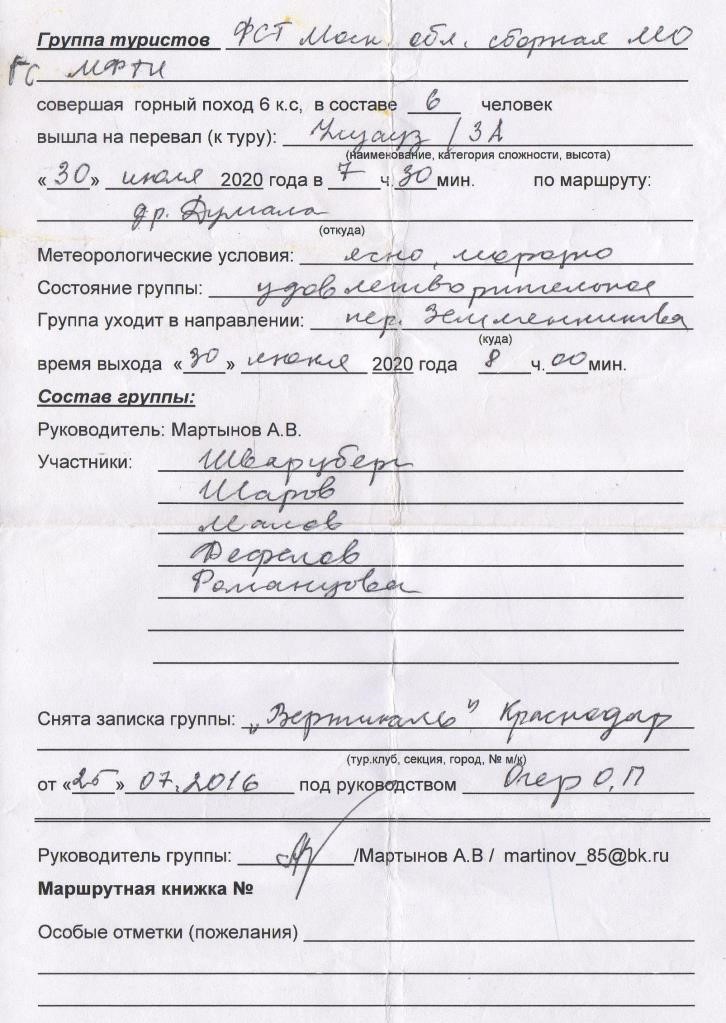 Группа туристов ФСТ Моск. обл. сборная МО
ГС МФТИ
совершая горный поход 6 к.с, в составе 6 человек
вышла на перевал (к туру): / 3А
(наименование, категория сложности, высота)
«30» июля 2020 года в 7 ч.30мин. по маршруту:
(откуда)
Метеорологические условия: ясно, морозно
Состояние группы: удовлетворительное
Группа уходит в направлении: пер. Земленникова
(куда)
время выхода «30» июля 2020 года 8 ч.00мин.
Состав группы:
Руководитель: Мартынов А.В.
Участники: Шварцберг
Шаров
Малов
Дефелов
Романцова
Снята записка группы: „Вертикаль" Краснодар
(тур.клуб, секция, город, № м/к)
от «25» 07.2016 под руководством Огер О,П
Руководитель группы: /Мартынов А.В / martinov_85@bk.ru
Маршрутная книжка №
Особые отметки (пожелания)